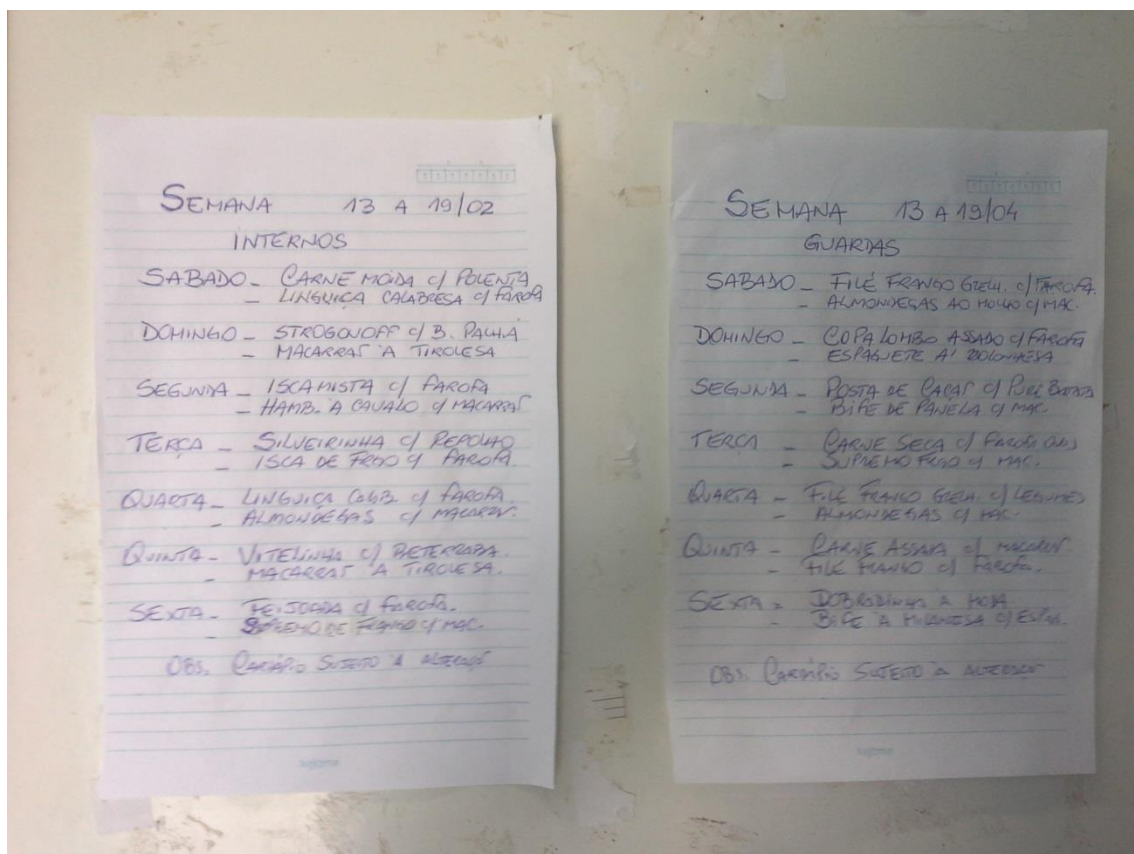 SEMANA 13 A 19/02
INTERNOS
SABADO - CARNE MOÍDA c/ POLENTA
- LINGUIÇA CALABRESA c/ FAROFA
DOMINGO - STROGONOFF c/ B. PALHA
- MACARRÃO À TIROLESA
SEGUNDA - ISCA MISTA c/ FAROFA
- HAMB. A CAVALO c/ MACARRÃO
TERÇA - SILVEIRINHA c/ REPOLHO
- ISCA DE FRGO c/ FAROFA
QUARTA - LINGUIÇA CALAB. c/ FAROFA.
- ALMONDEGAS c/ MACARRÃO.
QUINTA - VITELINHA c/ BETERRABA.
- MACARRÃO À TIROLESA.
SEXTA - FEIJOADA c/ FAROFA.
- SUPREMO DE FRANGO c/ MAC.
OBS. CARDÁPIO SUJEITO À ALTERAÇÃO
SEMANA 13 A 19/04
GUARDAS
SABADO - FILÉ FRANGO GRELH. c/ FAROFA.
- ALMONDEGAS AO MOLHO c/ MAC.
DOMINGO - COPA LOMBO ASSADO c/ FAROFA
- ESPAGUETE A' BOLONHESA
SEGUNDA - POSTA DE CAÇÃO c/ PURÊ BATATA
- BIFE DE PANELA c/ MAC.
TERÇA - CARNE SECA c/ FAROFA
- SUPREMO FRGO c/ MAC.
QUARTA - FILÉ FRANGO GRELH. c/ LEGUMES
- ALMONDEGAS c/ MAC.
QUINTA - CARNE ASSADA c/ MACARRÃO
- FILÉ FRANGO c/ FAROFA.
SEXTA - DOBRADINHA A MODA
- BIFE A MILANESA c/ ESPAG.
OBS. CARDÁPIO SUJEITO À ALTERAÇÃO